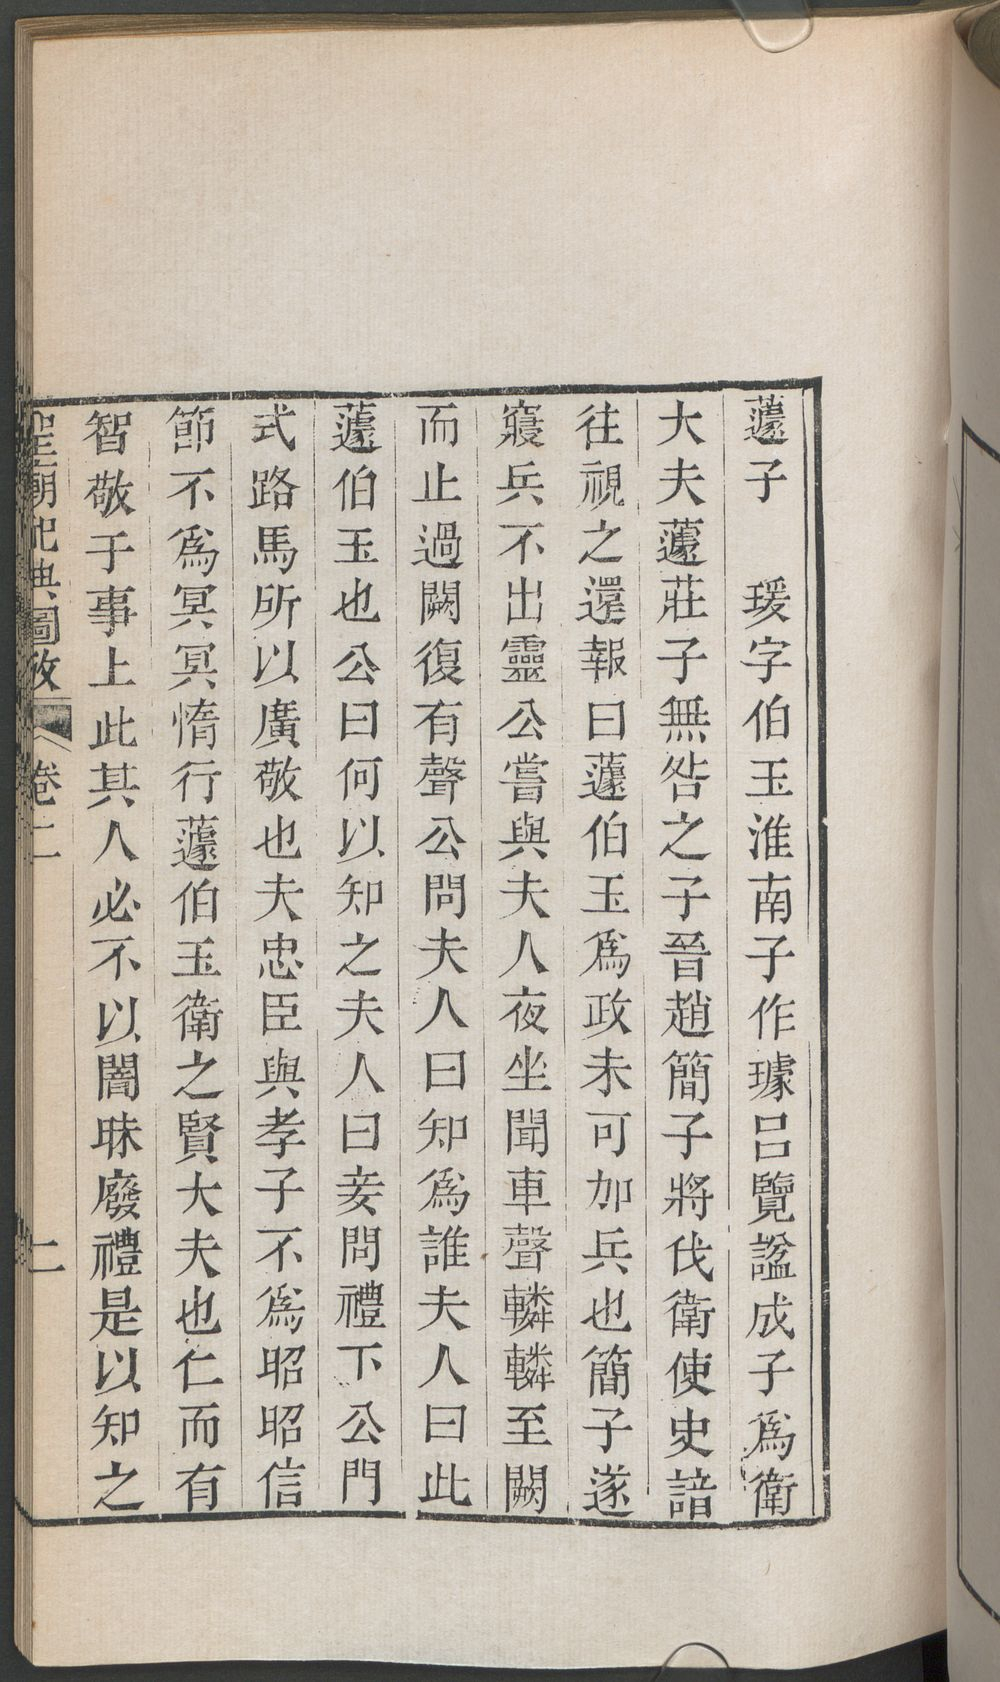 蘧子　瑗字伯玉淮南子作璩呂覽諡成子爲衛
大夫蘧莊子無咎之子晉趙簡子將伐衛使史諳
往視之還報曰蘧伯玉爲政未可加兵也簡子遂
寢兵不出靈公嘗與夫人夜坐聞車聲轔轔至闕
而止過闕復有聲公問夫人曰知爲誰夫人曰此
蘧伯玉也公曰何以知之夫人曰妾問禮下公門
式路馬所以廣敬也夫忠臣與孝子不爲昭昭信
節不爲冥冥惰行蘧伯玉衛之賢大夫也仁而有
智敬于事上此其人必不以闇昧廢禮是以知之
聖廟祀典圖攷　卷二　二